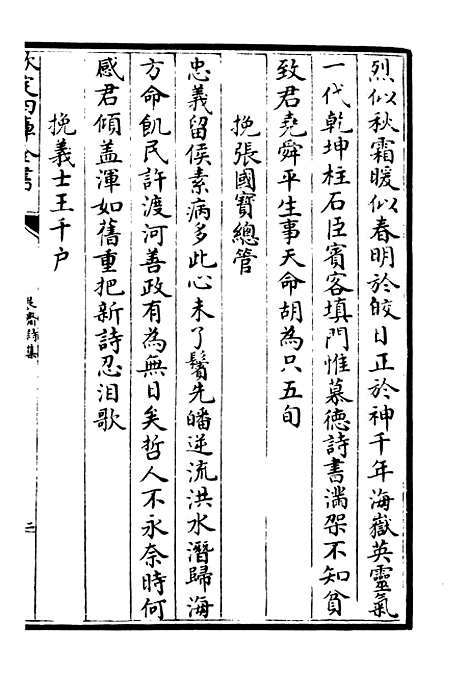 烈似秋霜暖似春明於皎日正於神千年海嶽英靈氣
一代乾坤柱石臣賓客填門惟慕德詩書滿架不知貧
致君堯舜平生事天命胡為只五旬
挽張國寶總管
忠義留侯素病多此心未了鬢先皤逆流洪水潛歸海
方命飢民許渡河善政有為無日矣哲人不永奈時何
感君傾盖渾如舊重把新詩忍淚歌
挽義士王千户
欽定四庫全書
詩集
二